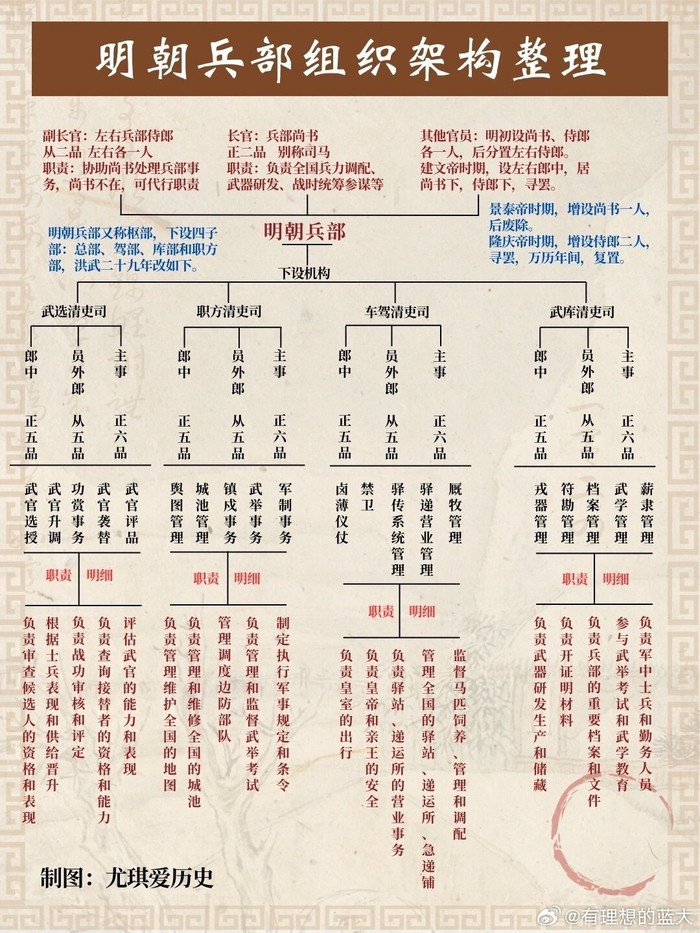 明朝兵部组织架构整理
副长官：左右兵部侍郎
从二品 左右各一人
职责：协助尚书处理兵部事
务，尚书不在，可代行职责
长官：兵部尚书
正二品 别称司马
职责：负责全国兵力调配、
武器研发、战时统筹参谋等
其他官员：明初设尚书、侍郎
各一人，后分置左右侍郎。
建文帝时期，设左右郎中，居
尚书下，侍郎下，寻罢。
明朝兵部又称枢部，下设四子
部：总部、驾部、库部和职方
部，洪武二十九年改如下。
明朝兵部
景泰帝时期，增设尚书一人，
后废除。
隆庆帝时期，增设侍郎二人，
寻罢，万历年间，复置。
下设机构
武选清吏司
职方清吏司
车驾清吏司
武库清吏司
郎中
员外郎
主事
郎中
员外郎
主事
郎中
员外郎
主事
郎中
员外郎
主事
正五品
从五品
正六品
正五品
从五品
正六品
正五品
从五品
正六品
正五品
从五品
正六品
武官选授
武官升调
功赏事务
武官袭替
武官评品
舆图管理
城池管理
镇戍事务
武举事务
军制事务
卤薄仪仗
禁卫
驿传系统管理
驿递营业管理
厩牧管理
戎器管理
符勘管理
档案管理
武学管理
薪隶管理
职责 明细
职责 明细
职责 明细
职责 明细
负责审查候选人的资格和表现
根据士兵表现和供给晋升
负责战功审核和评定
负责查询接替者的资格和能力
评估武官的能力和表现
负责管理维护全国的地图
负责管理和维修全国的城池
管理调度边防部队
负责管理和监督武举考试
制定执行军事规定和条令
负责皇室的出行
负责皇帝和亲王的安全
负责驿站、递运所的营业事务
管理全国的驿站、递运所、急递铺
监督马匹饲养、管理和调配
负责武器研发生产和储藏
负责开证明材料
负责兵部的重要档案和文件
参与武举考试和武学教育
负责军中士兵和勤务人员
制图：尤琪爱历史
@有理想的蓝大